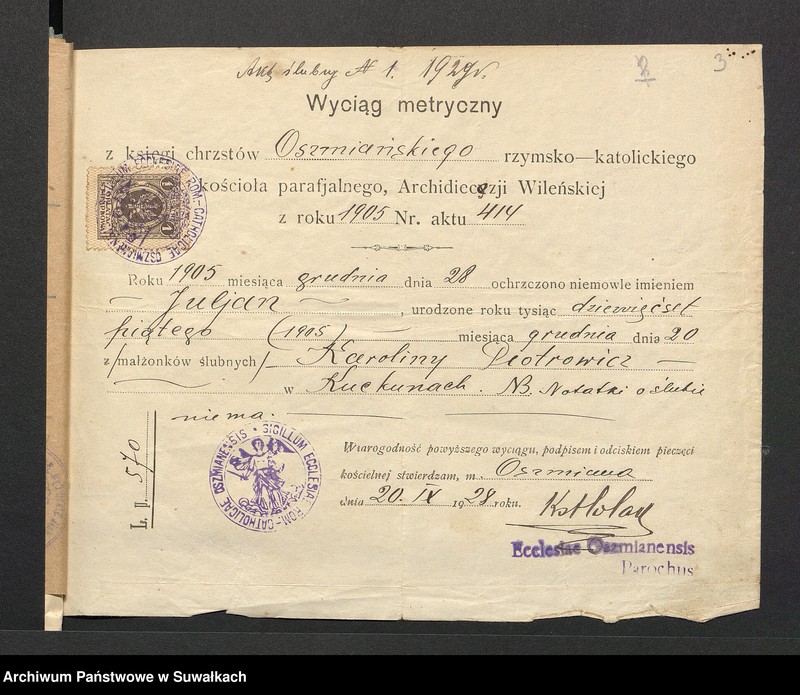 Akt ślubny № 1. 1929 r.
2
3
Wyciąg metryczny
z księgi chrzstów Oszmiańskiego rzymsko—katolickiego
kościoła parafjalnego, Archidiecezji Wileńskiej
z roku 1905 Nr. aktu 414
Roku 1905 miesiąca grudnia dnia 28 ochrzczono niemowle imieniem
— Juljan — , urodzone roku tysiąc dziewięćset
piątego (1905) miesiąca grudnia dnia 20
z /małżonków ślubnych/ — Karoliny Piotrowicz —
w Kuckunach. NB. Notatki o ślubie
niema.
L. p. 570
Wiarogodność powyższego wyciągu, podpisem i odciskiem pieczęci
kościelnej stwierdzam, m. Oszmiana
dnia 20. IX 1928 roku.
SIGILLUM ECCLESIAE ROM-CATHOLICAE OSZMIANENSIS
Ecclesiae Oszmianensis
Parochus
Archiwum Państwowe w Suwałkach